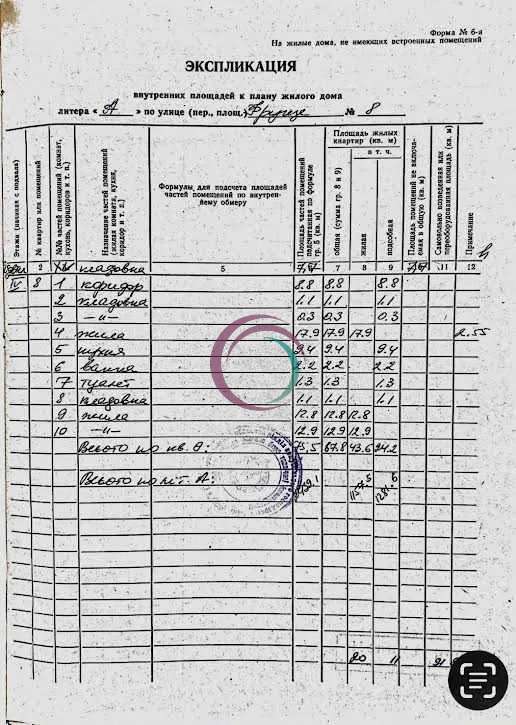 Форма № 6-а
На жилые дома, не имеющих встроенных помещений
ЭКСПЛИКАЦИЯ
внутренних площадей к плану жилого дома
литера « А » по улице (пер., площ.) № 8
Этажи (начиная с подвала)
№ квартир или помещений
№№ частей помещений (комнат, кухонь, коридоров и т. п.)
Назначение частей помещений (жилая комната, кухня, коридор и т. п.)
Формулы для подсчета площадей частей помещений по внутреннему обмеру
Площадь частей помещений подсчитанная по формуле гр. 5 (кв. м)
Площадь жилых квартир (кв. м)
общая (сумма гр. 8 и 9)
в т. ч.
жилая
подсобная
Площадь помещений не включаемая в общую (кв. м)
Самовольно возведенная или переоборудованная площадь (кв. м)
Примечание
2 кладовка 5 7,7 7 8 9 7,7 11 12
IV 8 1 коридор 8.8 8.8 8.8
2 кладовка 1.1 1.1 1.1
3 —"— 0.3 0.3 0.3
4 жила 17.9 17.9 17.9 2.55
5 кухня 9.4 9.4 9.4
6 ванна 2.2 2.2 2.2
7 туалет 1.3 1.3 1.3
8 кладовка 1.1 1.1 1.1
9 жила 12.8 12.8 12.8
10 —"— 12.9 12.9 12.9
Всього по кв. 8: 67.8 43.6 24.2
Всього по літ. А: 1157.5 1281.6
20 11 21